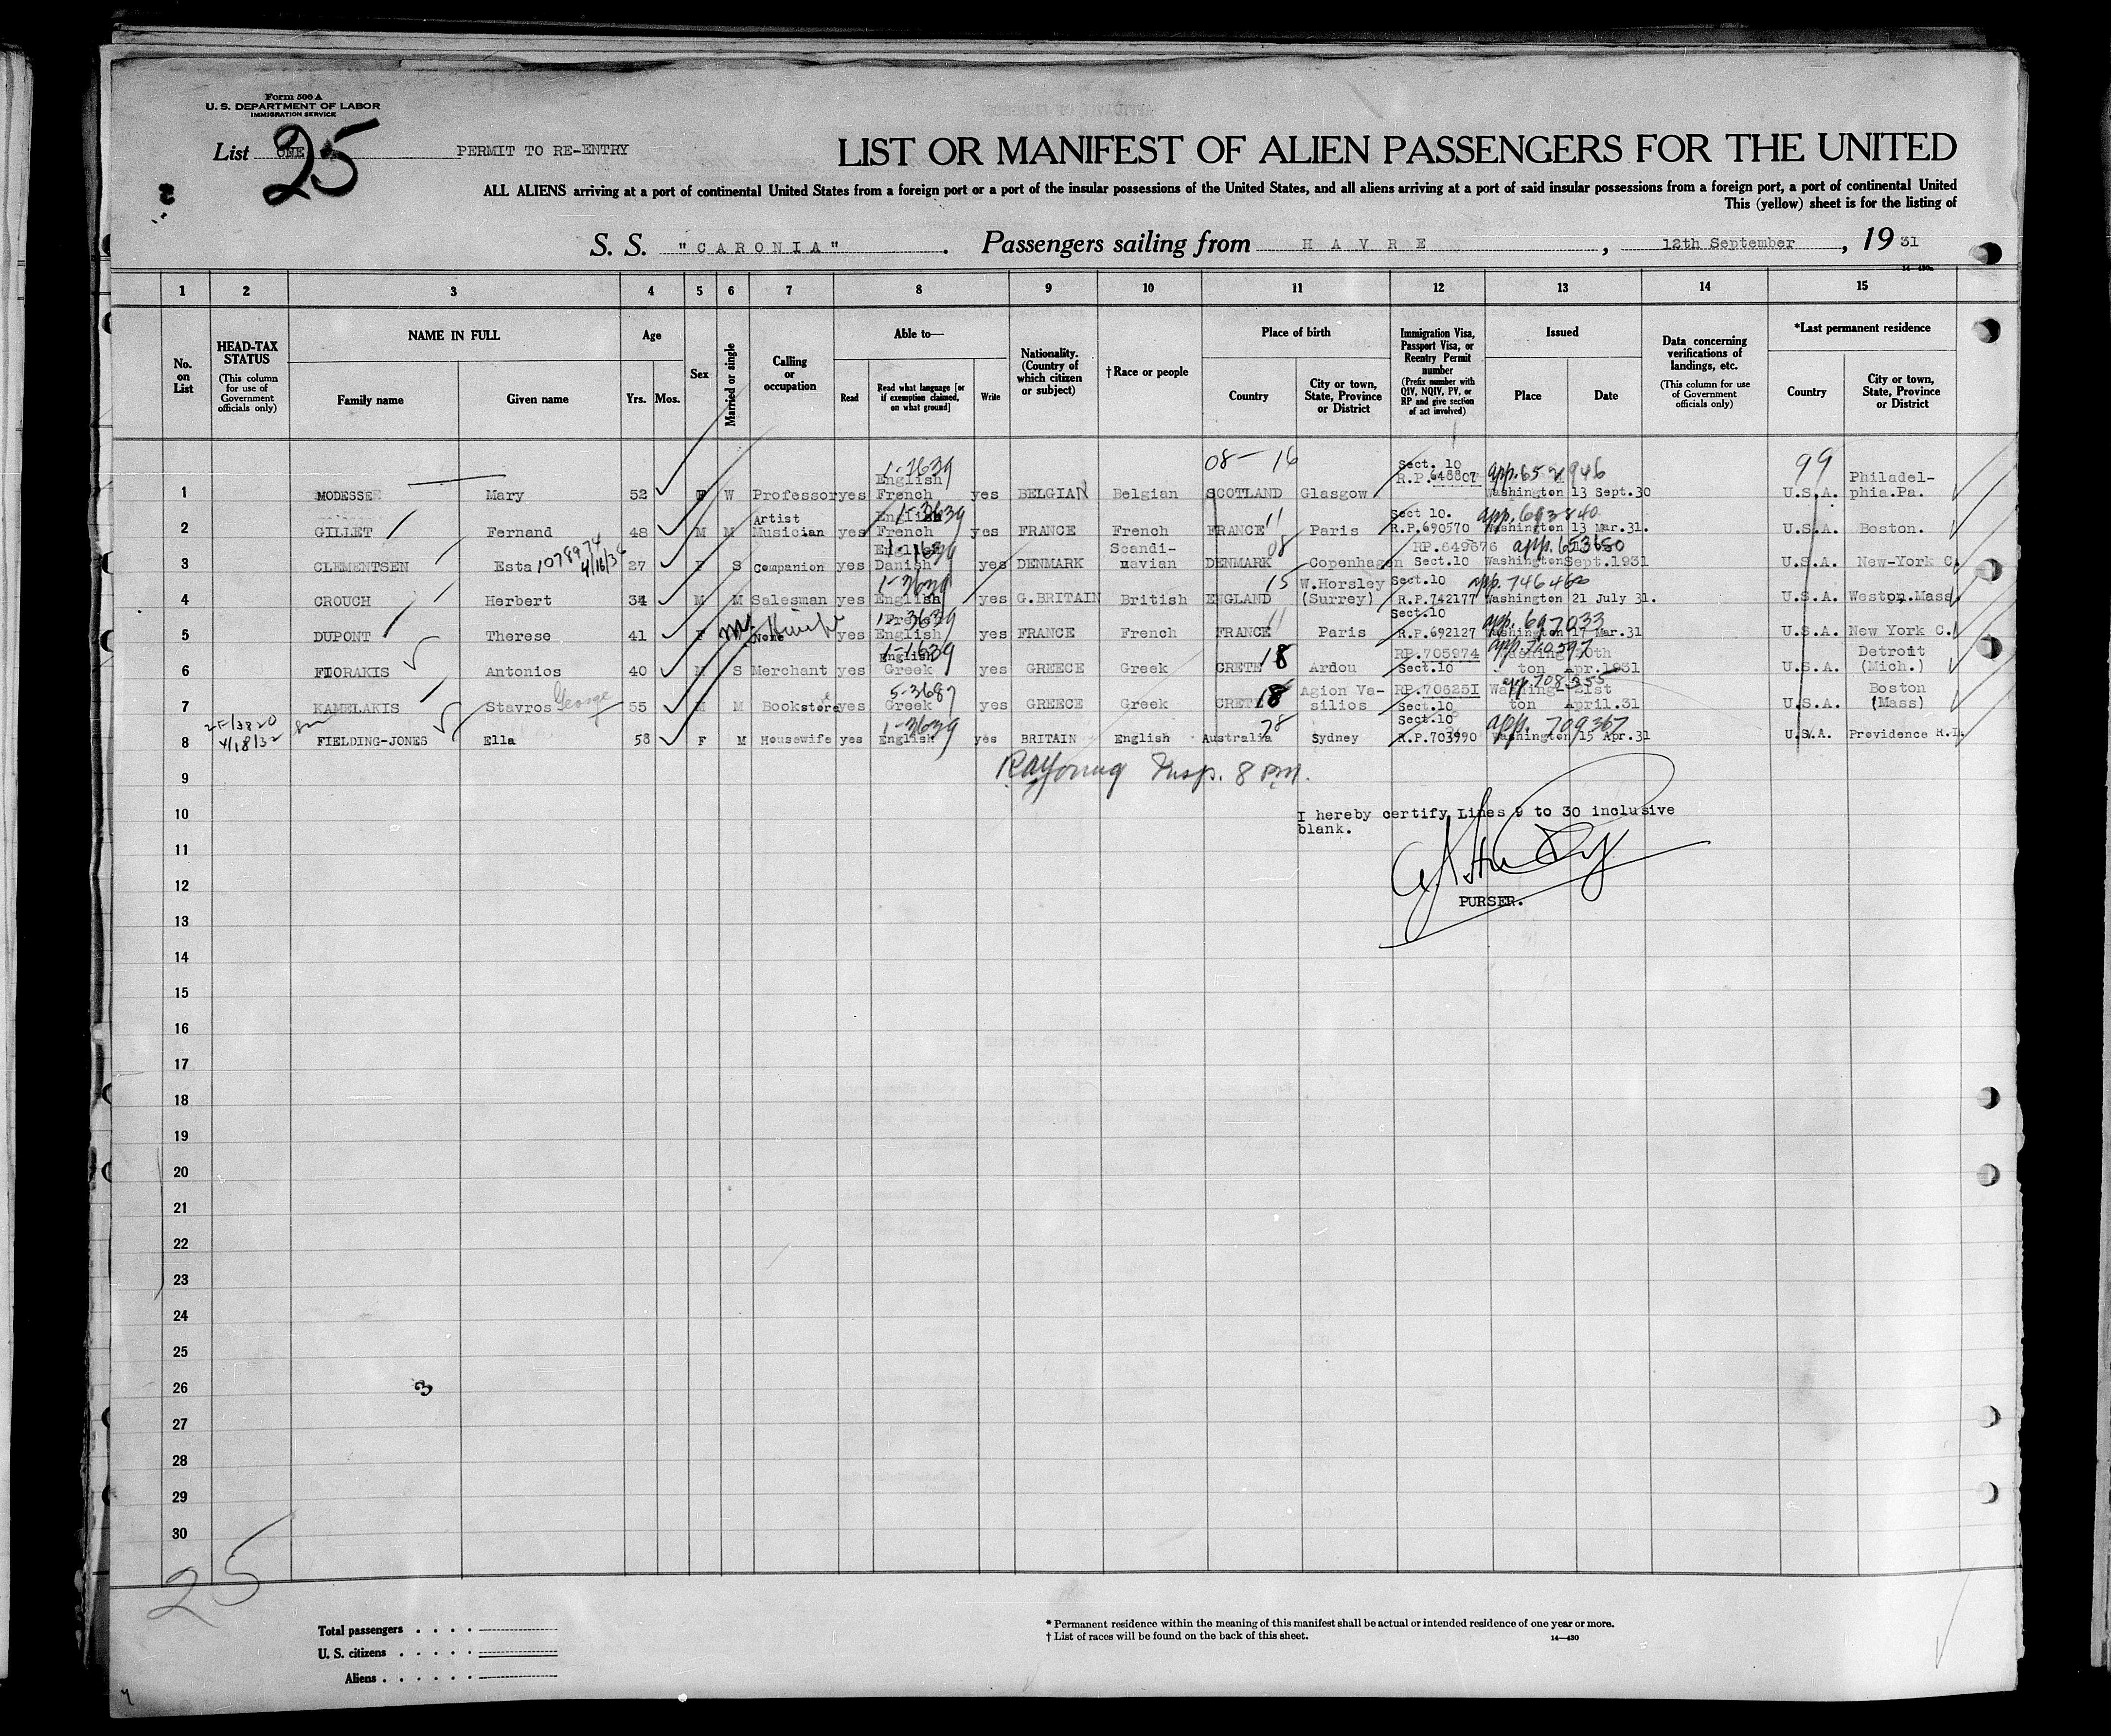 Form 500 A
U. S. DEPARTMENT OF LABOR
IMMIGRATION SERVICE
List ONE 25 PERMIT TO RE-ENTRY
LIST OR MANIFEST OF ALIEN PASSENGERS FOR THE UNITED
ALL ALIENS arriving at a port of continental United States from a foreign port or a port of the insular possessions of the United States, and all aliens arriving at a port of said insular possessions from a foreign port, a port of continental United
This (yellow) sheet is for the listing of
S. S. "CARONIA". Passengers sailing from HAVRE, 12th September, 19 31
1 2 3 4 5 6 7 8 9 10 11 12 13 14 15
No. on List
HEAD-TAX STATUS (This column for use of Government officials only)
NAME IN FULL Family name Given name
Age Yrs. Mos.
Sex
Married or single
Calling or occupation
Able to— Read Read what language [or if exemption claimed, on what ground] Write
Nationality. (Country of which citizen or subject)
† Race or people
Place of birth Country City or town, State, Province or District
Immigration Visa, Passport Visa, or Reentry Permit number (Prefix number with QIV, NQIV, PV, or RP and give section of act involved)
Issued Place Date
Data concerning verifications of landings, etc. (This column for use of Government officials only)
*Last permanent residence Country City or town, State, Province or District
08- 16 99
1 MODESSE Mary 52 F W Professor yes English French 1-3639 yes BELGIAN Belgian SCOTLAND Glasgow Sect. 10 R.P.648807 app. 652946 Washington 13 Sept.30 U.S.A. Philadelphia.Pa.
2 GILLET Fernand 48 M M Artist Musician yes English French 1-3639 yes FRANCE French FRANCE 11 Paris Sect 10. R.P.690570 app. 693840 Washington 13 Mar.31. U.S.A. Boston.
3 CLEMENTSEN Esta 1078974 4/16/36 27 F S Companion yes English Danish yes DENMARK Scandi-navian DENMARK 08 Copenhagen RP.649676 Sect.10 app. 653650 Washington Sept.1931 U.S.A. New-York C.
4 CROUCH Herbert 34 M M Salesman yes English 1-3639 yes G.BRITAIN British ENGLAND 15 W.Horsley (Surrey) Sect.10 R.P.742177 app. 746460 Washington 21 July 31. U.S.A. Weston.Mass
5 DUPONT Therese 41 F M None yes French English 1-3639 yes FRANCE French FRANCE 11 Paris Sect.10 R.P.692127 app. 697033 Washington 17 Mar.31 U.S.A. New York C.
6 FIORAKIS Antonios 40 M S Merchant yes English Greek 1-1639 yes GREECE Greek CRETE 18 Ardou RP.705974 Sect.10 app. 710597 Washington Apr.1931 U.S.A. Detroit (Mich.)
7 KAMELAKIS Stavros George 55 M M Bookstore yes Greek 5-3687 yes GREECE Greek CRETE 18 Agion Va-silios RP.706251 Sect.10 app. 708355 Washing-ton 21st April.31 U.S.A. Boston (Mass)
8 4/18/32 FIELDING-JONES Ella 58 F M Housewife yes English 1-3639 yes BRITAIN English Australia 28 Sydney Sect.10 R.P.703990 app. 709367 Washington 15 Apr.31 U.S.A. Providence R.I.
9 RaYoung Insp. 8 PM.
10 I hereby certify Lines 9 to 30 inclusive
blank.
11
12 PURSER.
13
14
15
16
17
18
19
20
21
22
23
24
25
26 3
27
28
29
30
25
Total passengers
U. S. citizens
Aliens
* Permanent residence within the meaning of this manifest shall be actual or intended residence of one year or more.
† List of races will be found on the back of this sheet.
14—430